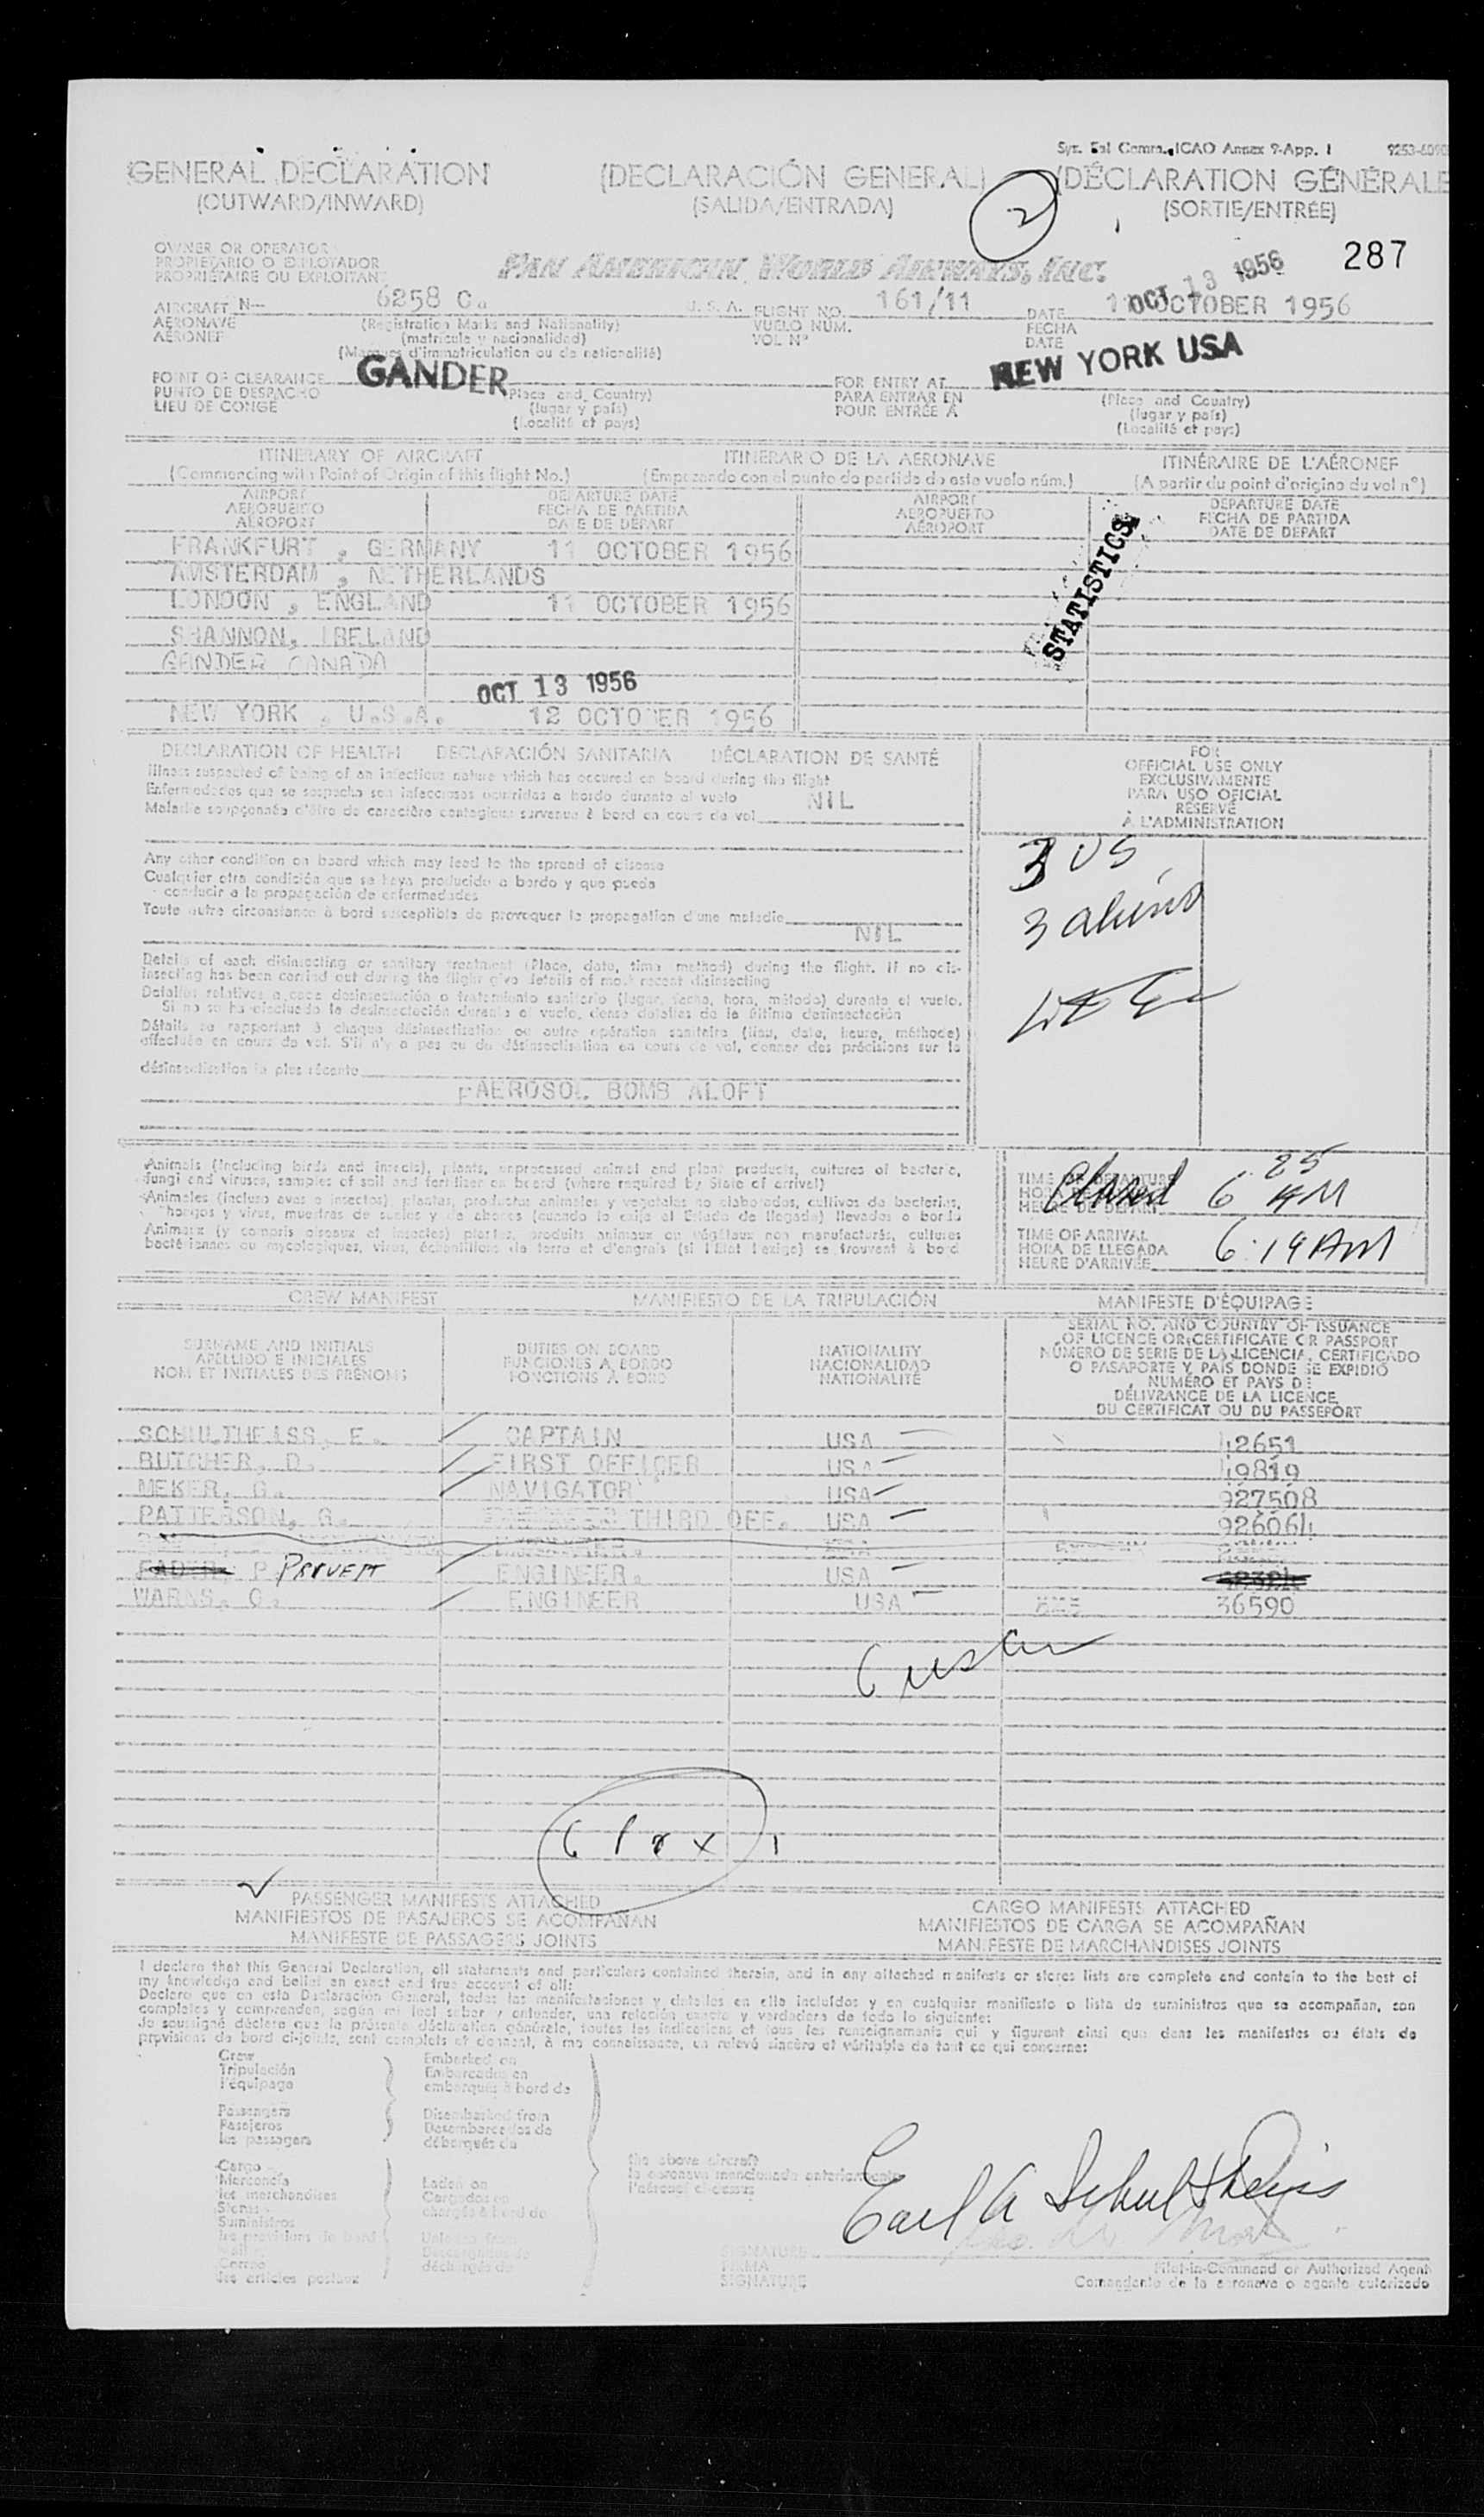 Sys. Sal Comm. ICAO Annex 9-App. 1
GENERAL DECLARATION (DECLARACIÓN GENERAL) (DÉCLARATION GÉNÉRALE
(OUTWARD/INWARD) (SALIDA/ENTRADA) (SORTIE/ENTRÉE)
2
287
OWNER OR OPERATOR
PROPIETARIO O EXPLOTADOR
PROPRIÉTAIRE OU EXPLOITANT
PAN AMERICAN WORLD AIRWAYS, INC.
OCT 13 1956
AIRCRAFT N— 6258 C. U.S.A. FLIGHT NO. 161/11 DATE OCTOBER 1956
AERONAVE (Registration Marks and Nationality) VUELO NÚM. FECHA
AÉRONEF (matrícula y nacionalidad) VOL Nº DATE
(Marques d'immatriculation ou de nationalité)
POINT OF CLEARANCE GANDER FOR ENTRY AT NEW YORK USA
PUNTO DE DESPACHO (Place and Country) PARA ENTRAR EN (Place and Country)
LIEU DE CONGÉ (lugar y país) POUR ENTRÉE À (lugar y país)
(Localité et pays) (Localité et pays)
ITINERARY OF AIRCRAFT ITINERARIO DE LA AERONAVE ITINÉRAIRE DE L'AÉRONEF
(Commencing with Point of Origin of this flight No.) (Empezando con el punto de partida de este vuelo núm.) (A partir du point d'origine du vol nº)
AIRPORT DEPARTURE DATE AIRPORT DEPARTURE DATE
AEROPUERTO FECHA DE PARTIDA AEROPUERTO FECHA DE PARTIDA
AÉROPORT DATE DE DÉPART AÉROPORT DATE DE DÉPART
FRANKFURT , GERMANY 11 OCTOBER 1956
AMSTERDAM , NETHERLANDS
LONDON , ENGLAND 11 OCTOBER 1956
STATISTICS
SHANNON, IRELAND
GANDER CANADA
OCT 13 1956
NEW YORK , U.S.A. 12 OCTOBER 1956
DECLARATION OF HEALTH DECLARACIÓN SANITARIA DÉCLARATION DE SANTÉ
Illness suspected of being of an infectious nature which has occured on board during the flight
Enfermedades que se sospecha son infecciosas ocurridas a bordo durante el vuelo NIL
Maladie soupçonnée d'être de caractère contagieux survenue à bord en cours de vol
FOR
OFFICIAL USE ONLY
EXCLUSIVAMENTE
PARA USO OFICIAL
RÉSERVÉ
À L'ADMINISTRATION
3 US
3 aliens
Any other condition on board which may lead to the spread of disease
Cualquier otra condición que se haya producido a bordo y que pueda
conducir a la propagación de enfermedades
Toute autre circonstance à bord susceptible de provoquer la propagation d'une maladie
NIL
Details of each disinsecting or sanitary treatment (Place, date, time method) during the flight. If no dis-
insecting has been carried out during the flight give details of most recent disinsecting
Detalles relativos a cada desinsectación o tratamiento sanitario (lugar, fecha, hora, método) durante el vuelo.
Si no se ha efectuado la desinsectación durante el vuelo, dense detalles de la última desinsectación
Détails se rapportant à chaque désinsectisation ou autre opération sanitaire (lieu, date, heure, méthode)
effectuée en cours de vol. S'il n'y a pas eu de désinsectisation en cours de vol, donner des précisions sur la
désinsectisation la plus récente
AEROSOL BOMB ALOFT
Animals (including birds and insects), plants, unprocessed animal and plant products, cultures of bacteria,
fungi and viruses, samples of soil and fertiliser on board (where required by State of arrival)
Animales (incluso aves e insectos), plantas, productos animales y vegetales no elaborados, cultivos de bacterias,
hongos y virus, muestras de suelos y de abonos (cuando lo exija el Estado de llegada) llevados a bordo
Animaux (y compris oiseaux et insectes) plantes, produits animaux ou végétaux non manufacturés, cultures
bactériennes ou mycologiques, virus, échantillons de terre et d'engrais (si l'Etat l'exige) se trouvent à bord
TIME OF DEPARTURE
HORA DE
HEURE DE DÉPART
Cleared 6 25 AM
TIME OF ARRIVAL
HORA DE LLEGADA 6:19 AM
HEURE D'ARRIVÉE
CREW MANIFEST MANIFIESTO DE LA TRIPULACIÓN MANIFESTE D'ÉQUIPAGE
SURNAME AND INITIALS DUTIES ON BOARD NATIONALITY
APELLIDO E INICIALES FUNCIONES A BORDO NACIONALIDAD
NOM ET INITIALES DES PRÉNOMS FONCTIONS À BORD NATIONALITÉ
SERIAL NO. AND COUNTRY OF ISSUANCE
OF LICENCE OR CERTIFICATE OR PASSPORT
NÚMERO DE SERIE DE LA LICENCIA, CERTIFICADO
O PASAPORTE Y PAÍS DONDE SE EXPIDIÓ
NUMÉRO ET PAYS DE
DÉLIVRANCE DE LA LICENCE
DU CERTIFICAT OU DU PASSEPORT
SCHULTHEISS, E. CAPTAIN USA 42651
BUTCHER, D. FIRST OFFICER USA 49819
MEKER, G. NAVIGATOR USA 927508
PATTERSON, G. THIRD OFF. USA 926064
P. ENGINEER. USA
WARNS, O. ENGINEER USA 36590
6
6 PAX 1
PASSENGER MANIFESTS ATTACHED CARGO MANIFESTS ATTACHED
MANIFIESTOS DE PASAJEROS SE ACOMPAÑAN MANIFIESTOS DE CARGA SE ACOMPAÑAN
MANIFESTE DE PASSAGERS JOINTS MANIFESTE DE MARCHANDISES JOINTS
I declare that this General Declaration, all statements and particulars contained therein, and in any attached manifests or stores lists are complete and contain to the best of
my knowledge and belief an exact and true account of all:
Declaro que en esta Declaración General, todas las manifestaciones y detalles en ella incluídos y en cualquier manifiesto o lista de suministros que se acompañan, son
completas y comprenden, según mi leal saber y entender, una relación exacta y verdadera de todo lo siguiente:
Je soussigné déclare que la présente déclaration générale, toutes les indications et tous les renseignements qui y figurent ainsi que dans les manifestes ou états de
provisions de bord ci-joints, sont complets et donnent, à ma connaissance, un relevé sincère et véritable de tout ce qui concerne:
Crew Embarked on
Tripulación Embarcados en
l'équipage embarqués à bord de
Passengers Disembarked from
Pasajeros Desembarcados de
les passagers débarqués du
Cargo
Mercancía
les marchandises
Stores
Suministros
les provisions de bord
Laden on
Cargados en
chargés à bord de
the above aircraft
la aeronave mencionada anteriormente
l'aéronef ci-dessus
Earl A Schultheiss
les articles postaux
SIGNATURE
FIRMA
SIGNATURE
Pilot-in-Command or Authorized Agent
Comandante de la aeronave o agente autorizado